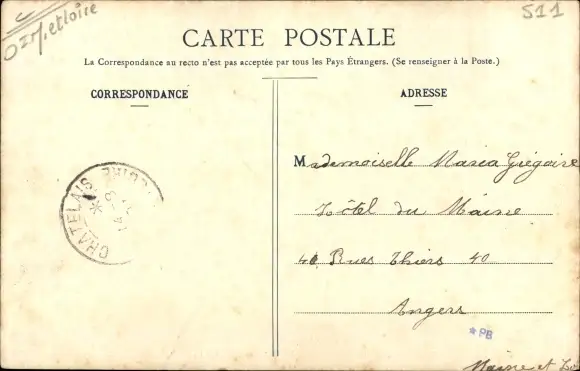 Mᵉetloire
511
CARTE POSTALE
La Correspondance au recto n'est pas acceptée par tous les Pays Étrangers. (Se renseigner à la Poste.)
CORRESPONDANCE
ADRESSE
CHATELAIS
Mademoiselle Maria Grégoire
Hôtel du Maine
40 Rues Thiers 40
Angers
*PB
Maine et